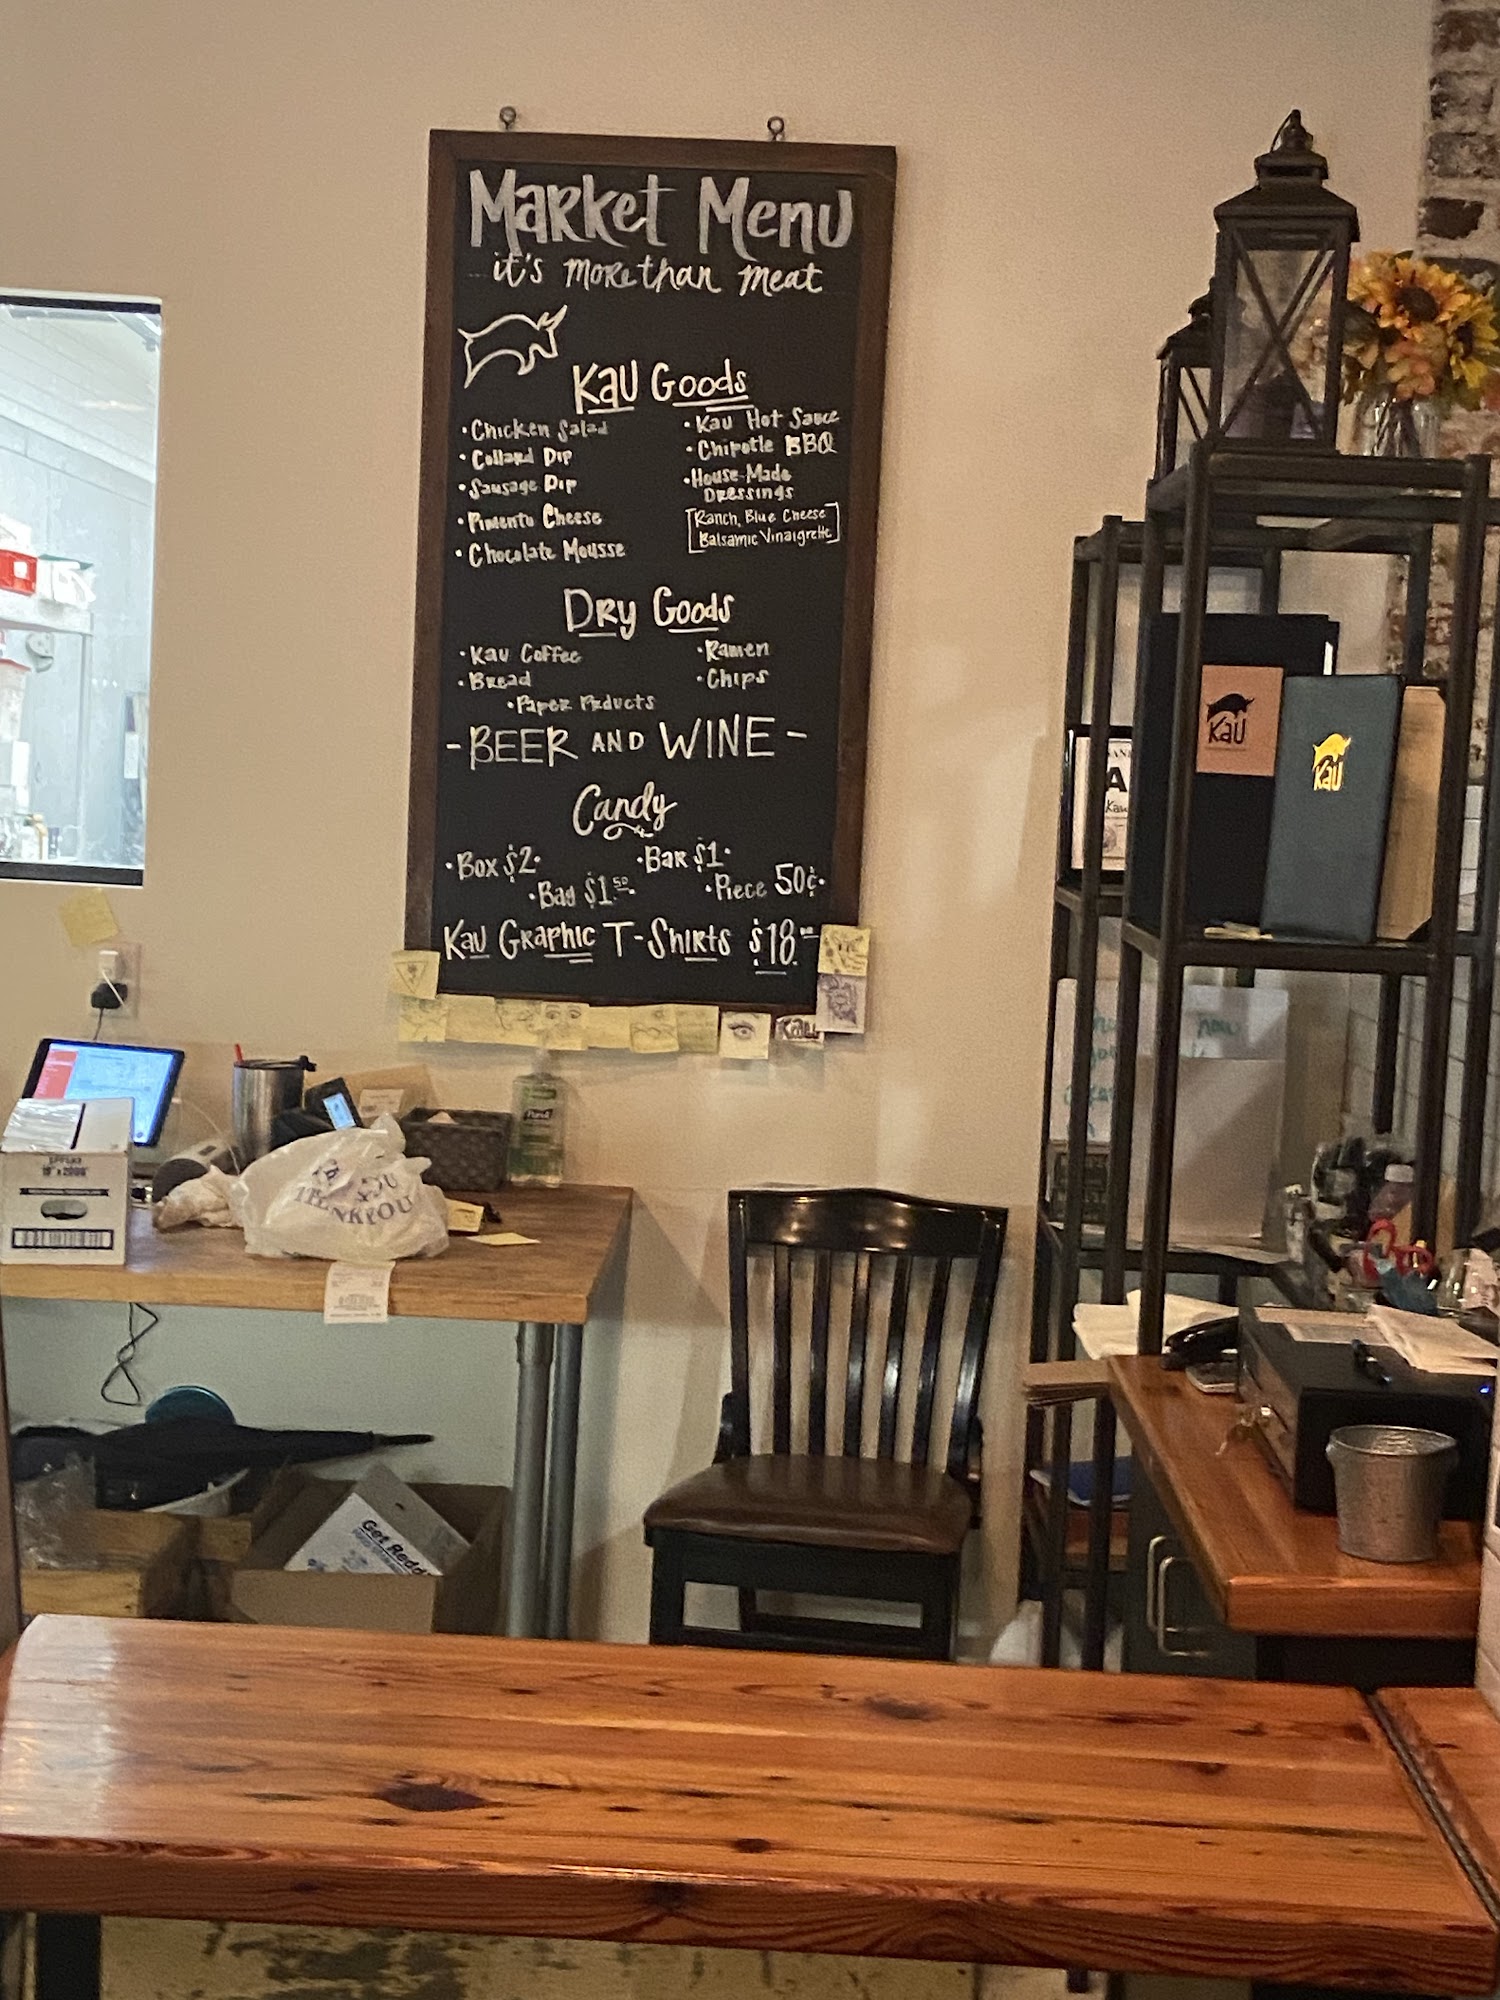 Market Menu
it's more than meat
Kau Goods
• Chicken Salad
• Collard Dip
• Sausage Dip
• Pimento Cheese
• Chocolate Mousse
• Kau Hot Sauce
• Chipotle BBQ
• House-Made
Dressings
[Ranch, Blue Cheese
Balsamic Vinaigrette]
Dry Goods
• Kau Coffee
• Bread
• Ramen
• Chips
• Paper Prducts
- BEER AND WINE -
Candy
• Box $2 •
• Bar $1 •
• Bag $1.50 •
• Piece 50¢ •
Kau Graphic T-Shirts $18.00
Kau
Kau
Kau
A
THANK YOU
Get Redd